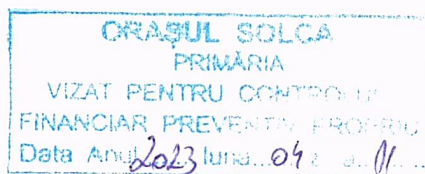 ORAȘUL SOLCA
PRIMĂRIA
VIZAT PENTRU CONTROLUL
FINANCIAR PREVENTIV PROPRIU
Data Anul 2023 luna...04 z a..